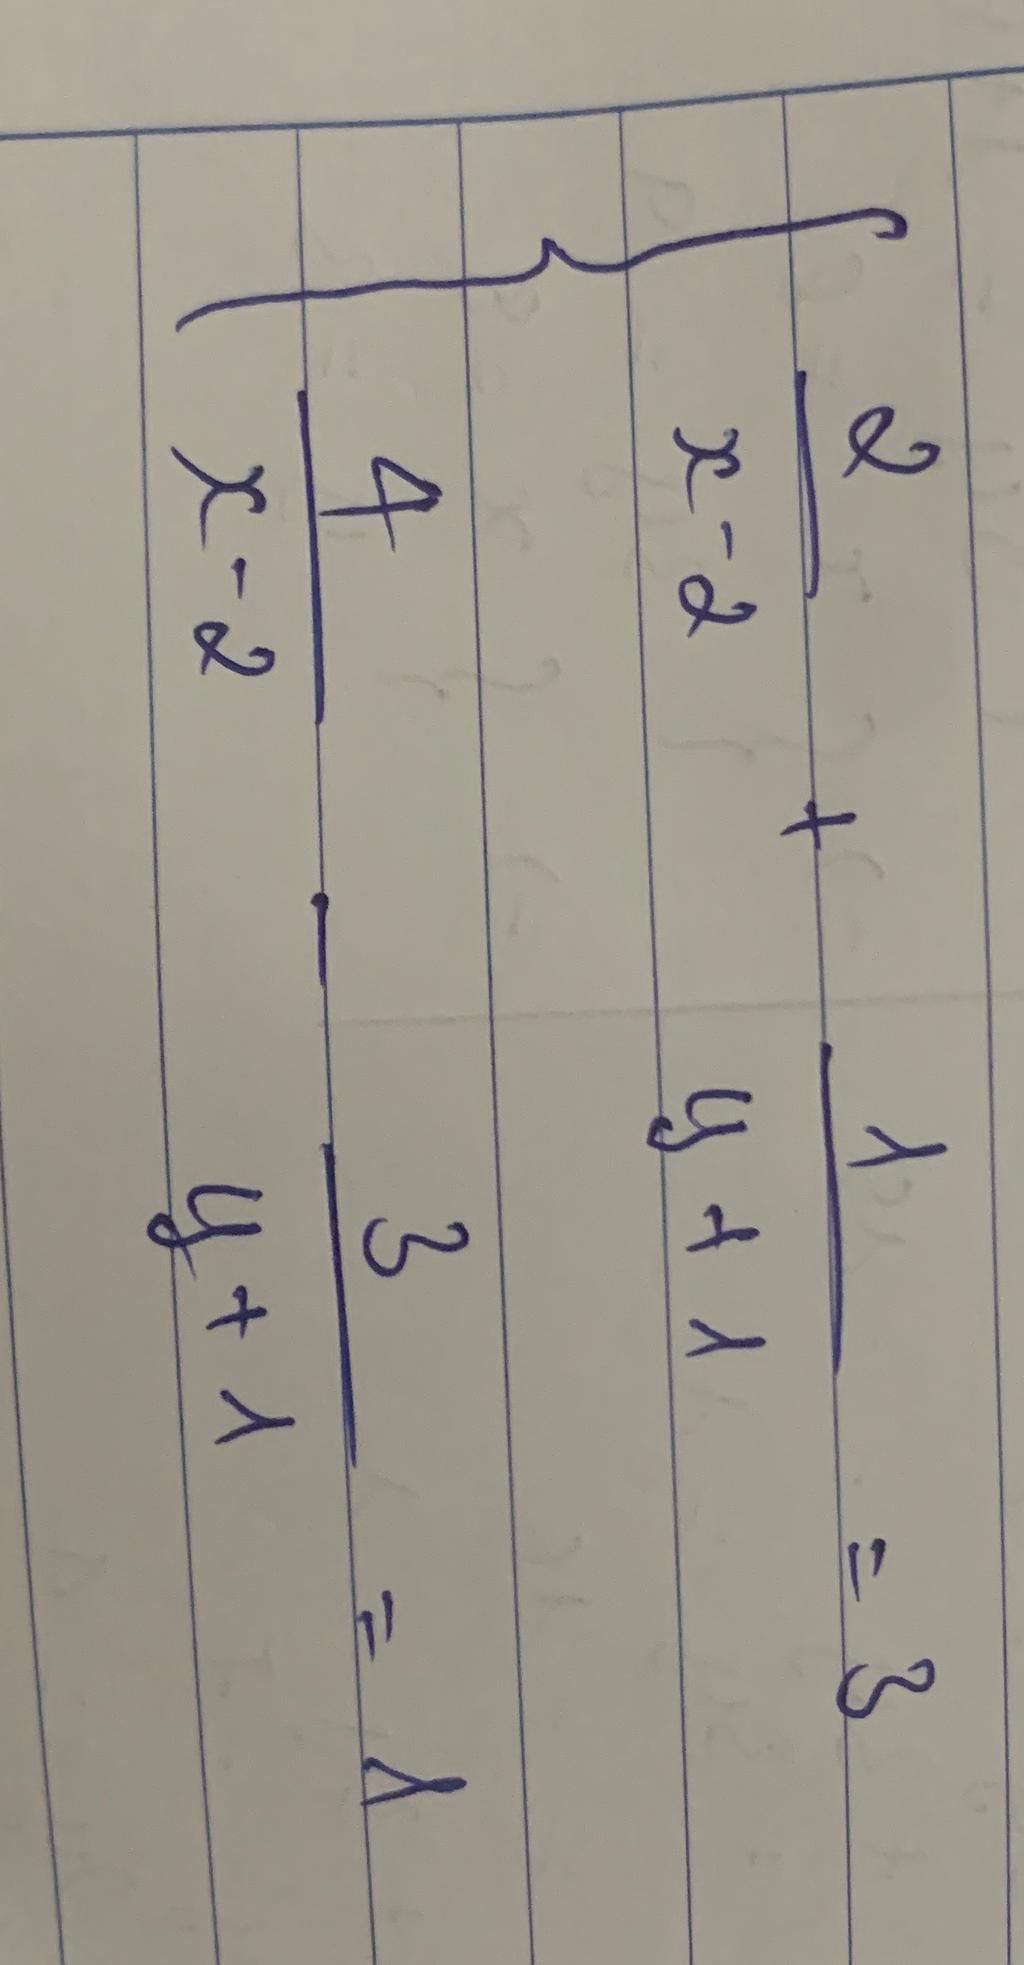 { 2/(x-2) + 1/(y+1) = 3
4/(x-2) - 3/(y+1) = 1